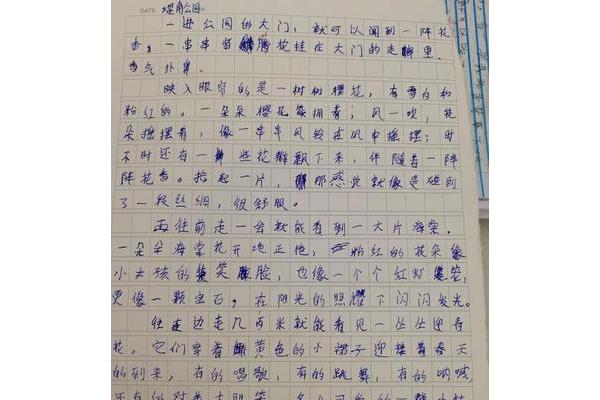 DATE 堤角公园
一进公园的大门，就可以闻到一阵花
香，一串串紫藤花挂在大门的走廊里，
香气扑鼻。
映入眼帘的是一树树樱花，有雪白和
粉红的。一朵朵樱花簇拥着；风一吹，花
朵摇摆着，像一串串风铃在风中摇摆；时
不时还有一些花瓣飘下来，伴随着一阵
阵花香。拾起一片，那感觉就像是碰到
了一段丝绸，很舒服。
再往前走一会就能看到一大片海棠，
一朵朵海棠花开地正艳，粉红的花朵像
小女孩的笑脸，也像一个个红灯笼，
更像一颗宝石，在阳光的照耀下闪闪发光。
往边走几百米就能看见一丛丛迎春
花。它们穿着黄色的小裙子迎接着春天
的到来，有的唱歌，有的跳舞，有的呐喊，
还有的对着太阳笑